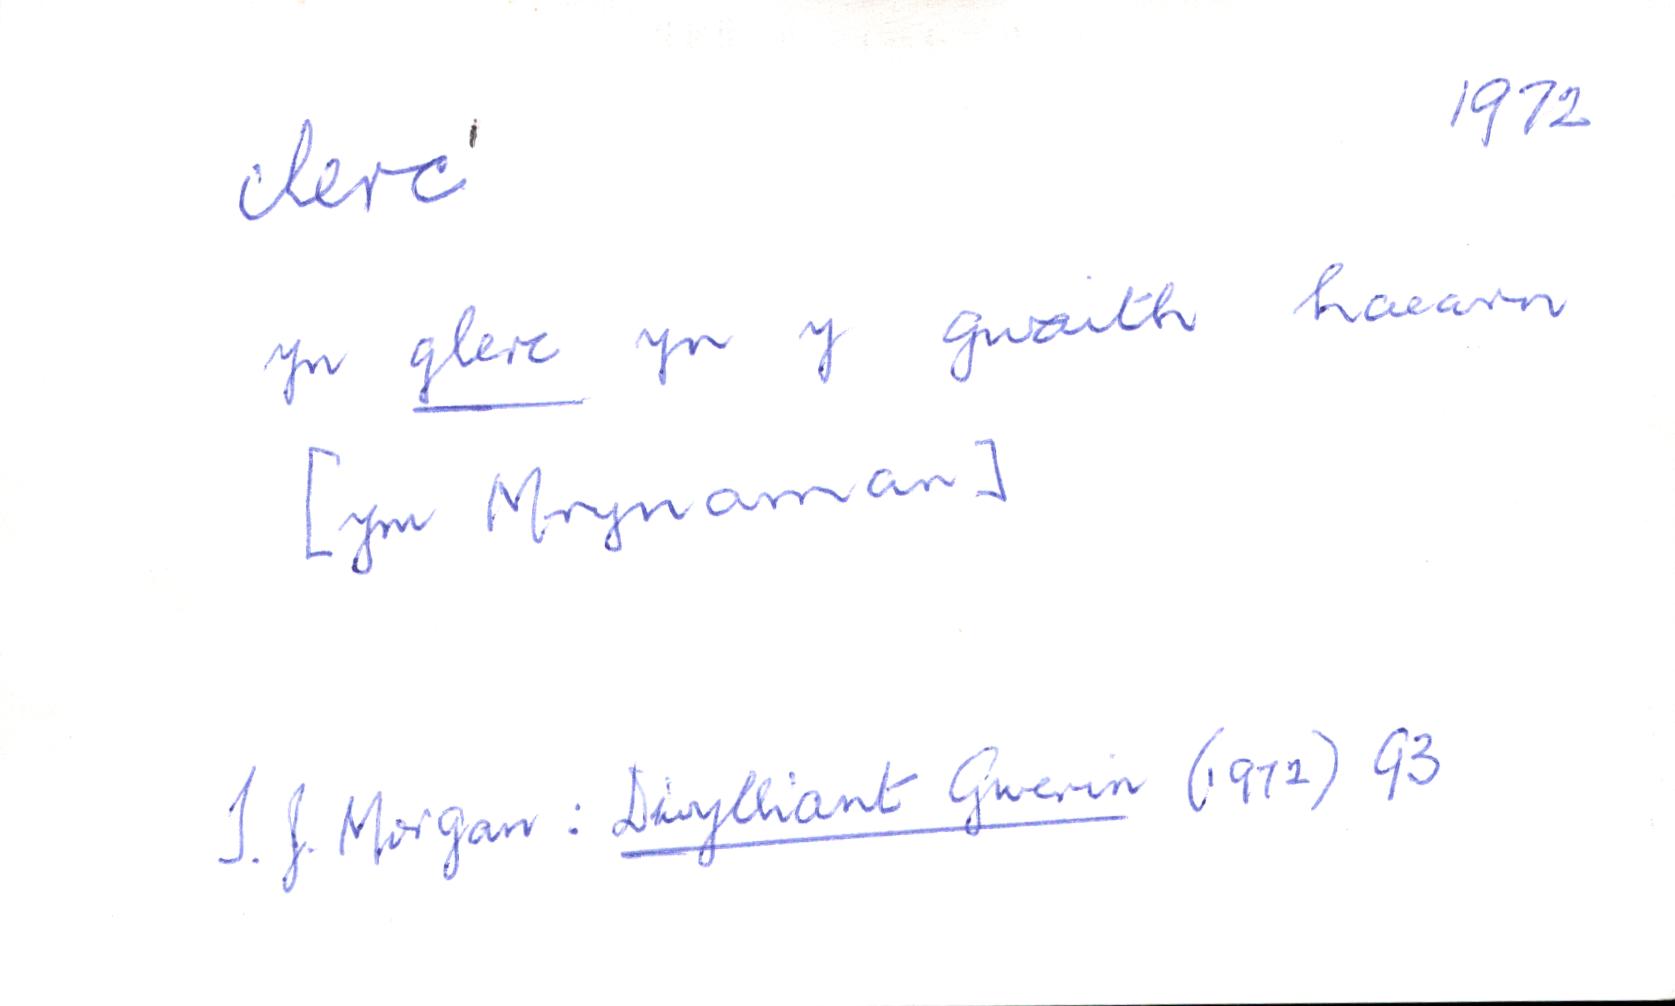 1972
clerc¹
yn glerc yn y gwaith haearn
[ym Mrynaman]
T. J. Morgan: Diwylliant Gwerin (1972) 93